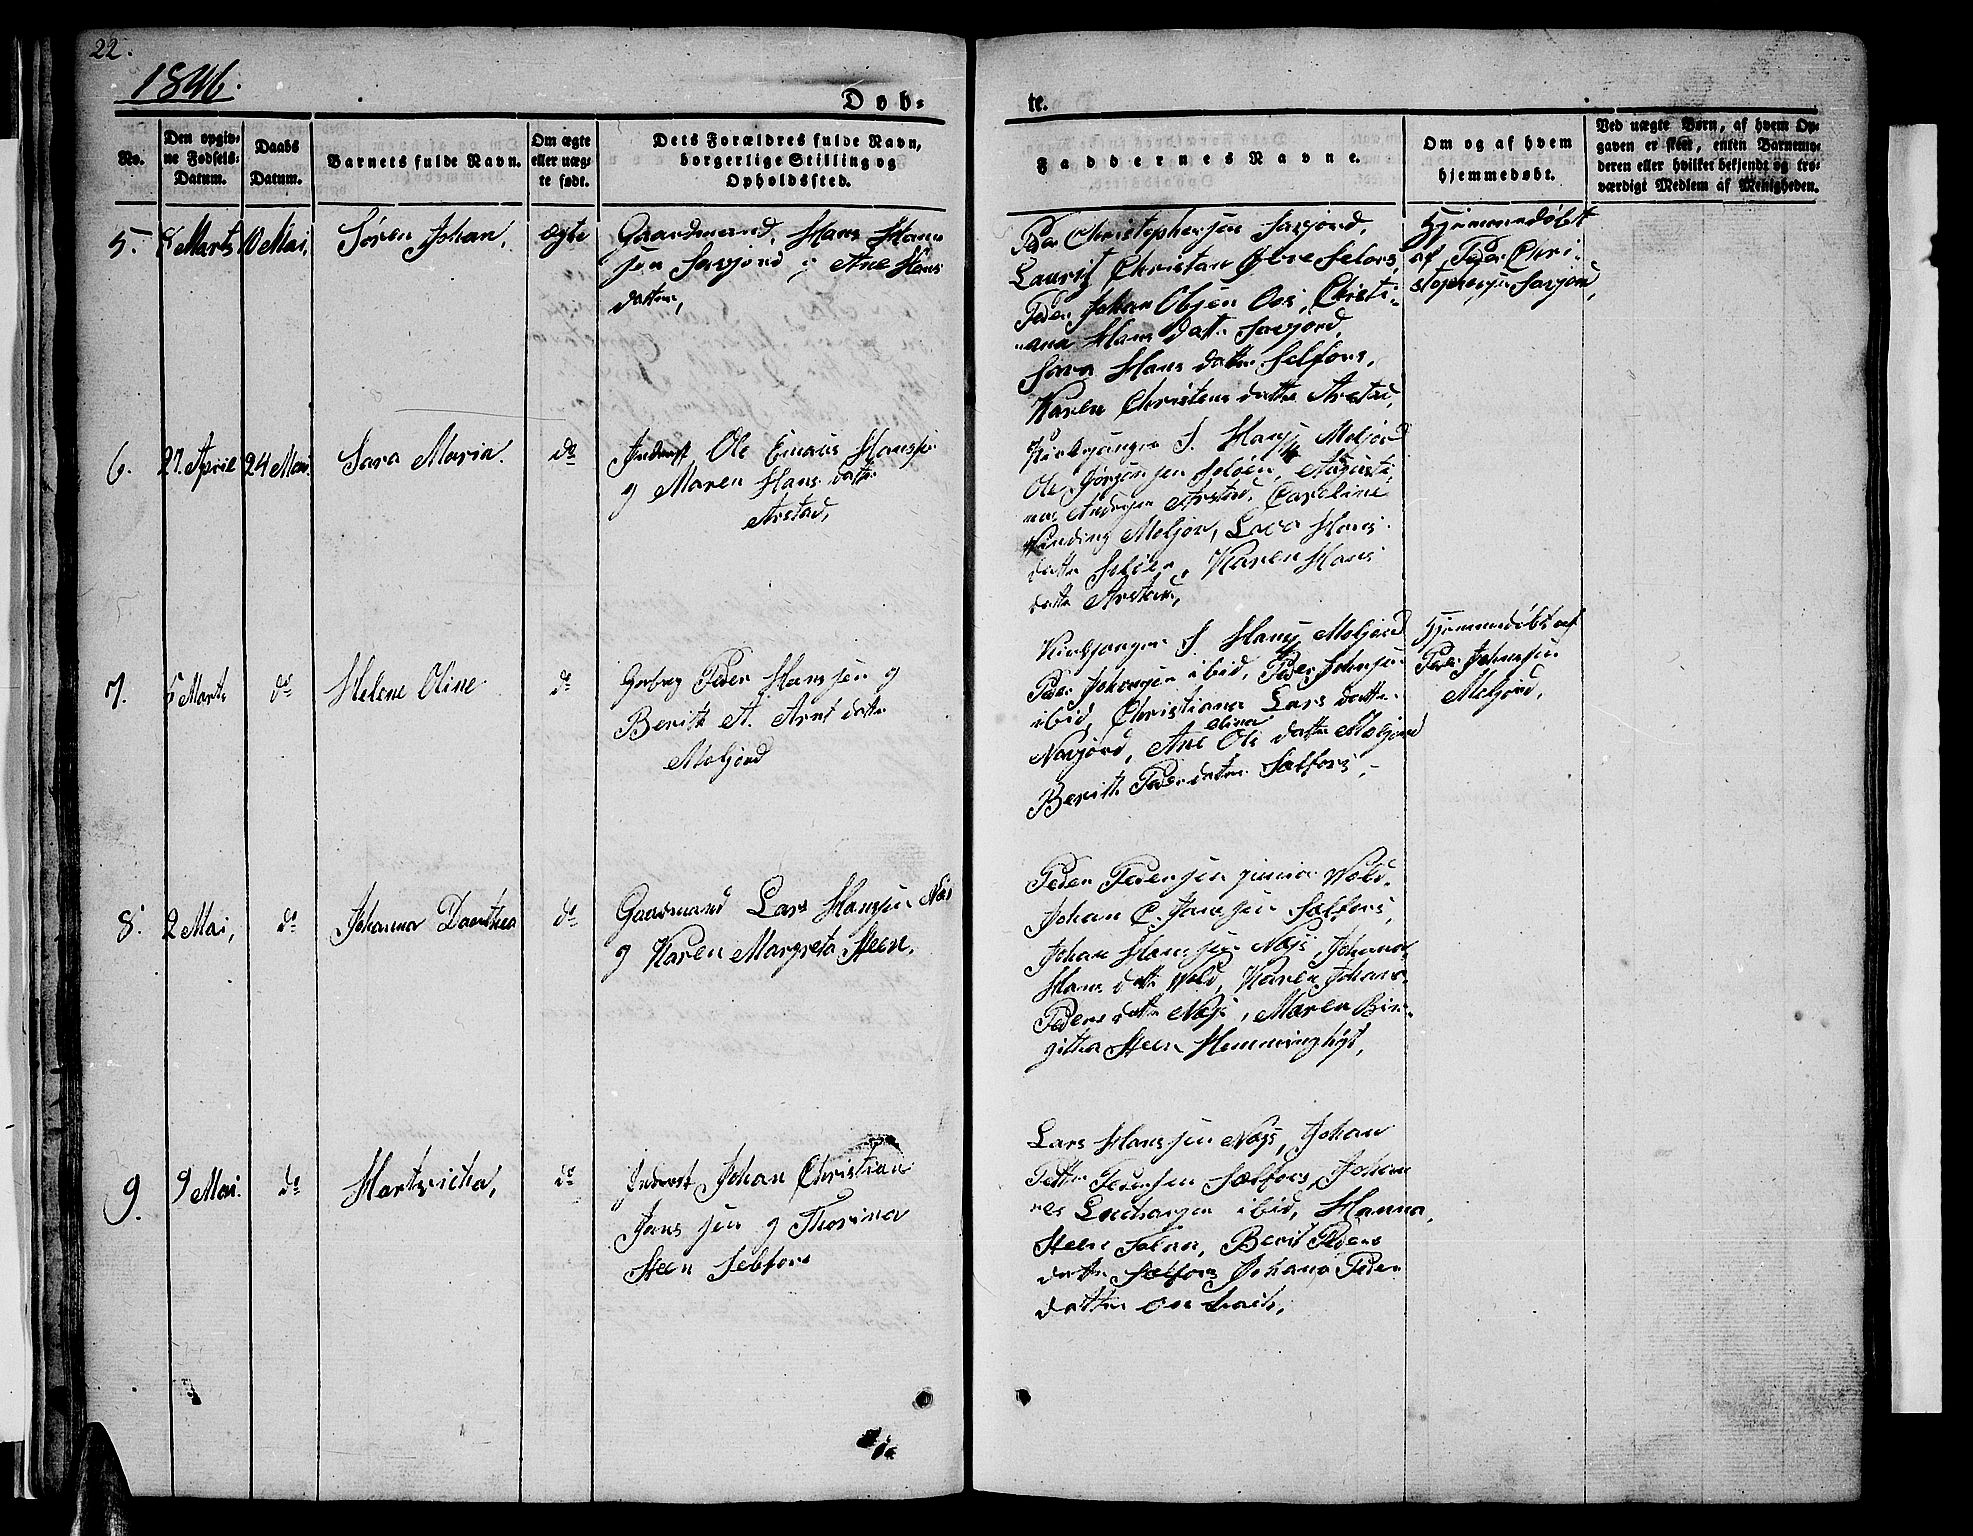 22.
1846.
Døb-
te.
No.
Den opgiv-
ne Fødsels-
Datum.
Daabs
Datum.
Barnets fulde Navn.
Om ægte
eller uæg-
te født.
Dets Forældres fulde Navn,
borgerlige Stilling og
Opholdssted.
Faddernes Navne.
Om og af hvem
hjemmedøbt.
Ved uægte Børn, af hvem Op-
gaven er skeet, enten Barnemo-
deren eller hvilket bekjendt og tro-
værdigt Medlem af Menigheden.
5.
8 Marts
10 Mai,
Søren Johan,
ægte
Gaardmand, Hans Han-
sen Saxjord og Ane Hans
datter,
Peder Christophersen Saxjord,
Laurits Christian Øvre Selfors,
Peder Johan Olsen Oes, Christi-
ana Hans datter Saxjord,
Sara Hans datter Selfors,
Karen Christens datter Arstad,
Hjemmedøbt
af Peder Chri-
stophersen Saxjord,
6.
27. April
24 Mai
Sara Maria.
do
Inderst Ole Emaus Hanssen
og Maren Hans datter
Arstad,
Kirkesanger J. Hansen Moljord
Ole Jørgensen Seløen, Augusti-
nus Andersen Arstad, Caroline
Wending Moljord, Lava Hans
datter Seløen, Karen Hans
datter Arstad,
7.
5 Marts
do
Helene Oline
do
Peder Hanssen og
Berith A. Arnt datter
Moljord
Kirkesanger J. Hansen Moljord
Peder Johnsen ibid, Peder Johnsen
ibid, Christiana Lars datter
Navjord, Ane Elina Ols datter Moljord
Berith Peders datter Selfors,
Hjemmedøbt af
Peder Johnsen
Moljord,
8.
2 Mai,
do
Johanna Daarthea
do
Gaardmand Lars Hansen Næs
og Karen Margreta Steen,
Peder Pedersen junior Wold,
Johan C. Jansen Selfors,
Johan Hansen Næss, Johanna
Hans datter Wold, Karen Johana
Peders datter Næss, Maren Bir-
githa Steen Hemmingligt,
9.
9 Mai.
do
Hartvicka,
do
Inderst Johan Christian
Jans sen og Thorina
Steen Selfors
Lars Hanssen Næss, Johan
Petter Pedersen Selfors, Johan
nes Zachariasen ibid, Hanna
Steen, Berit Peders
datter Selfors Johana Peder
datter